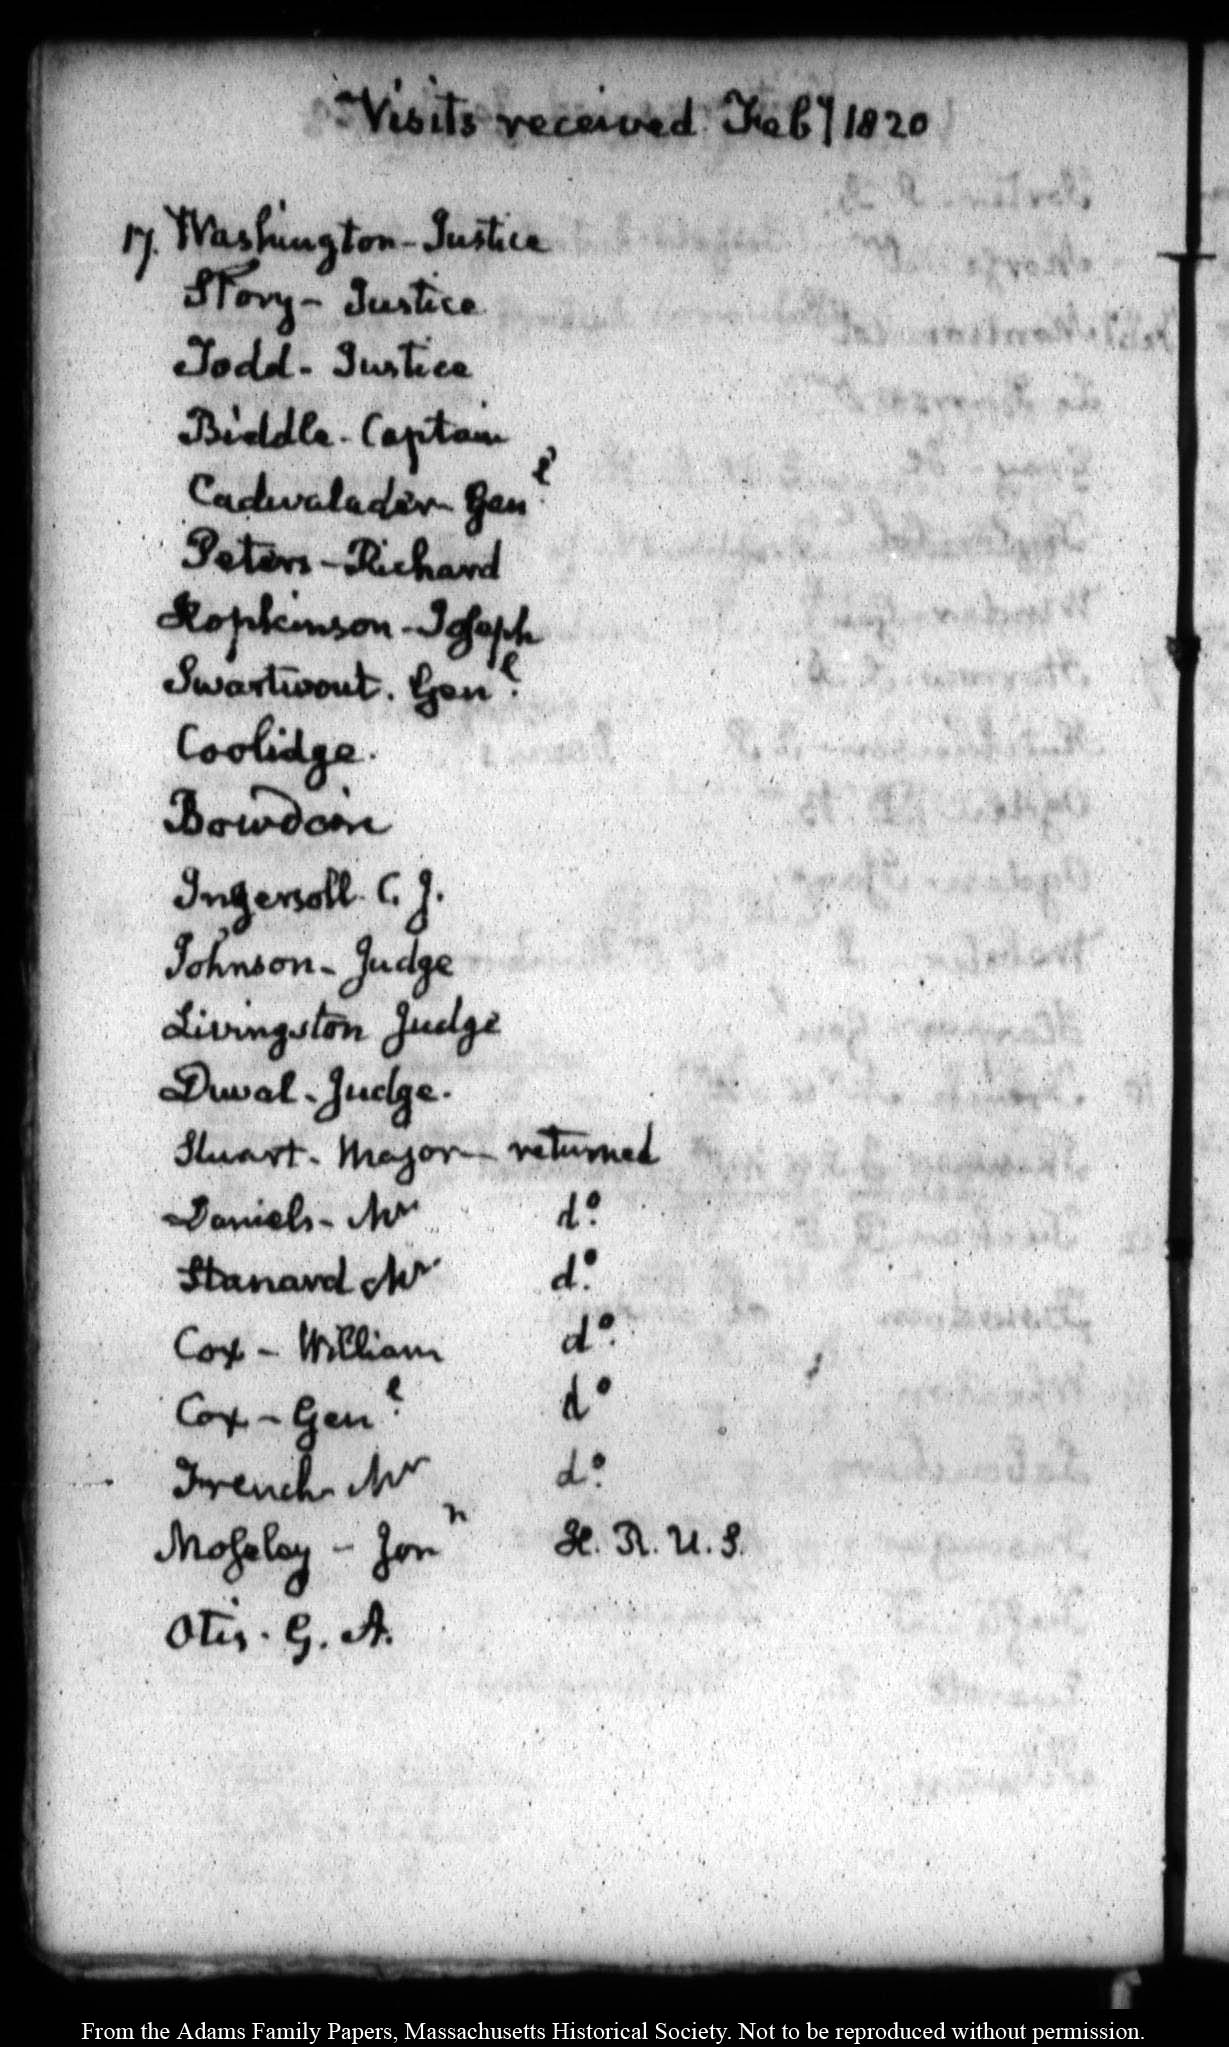 Visits received Feby 1820
17. Washington - Justice
Story - Justice
Todd - Justice
Biddle - Captain
Cadwalader - Genl.
Peters - Richard
Hopkinson - Joseph
Swartwout. Genl.
Coolidge.
Bowdoin
Ingersoll. C. J.
Johnson - Judge
Livingston Judge
Duval - Judge.
Stuart - Major - returned
Daniels - Mr do.
Stanard Mr do.
Cox - William do.
Cox - Genl. do
French Mr do.
Moseley - Jonn H. R. U. S.
Otis - G. A.
From the Adams Family Papers, Massachusetts Historical Society. Not to be reproduced without permission.